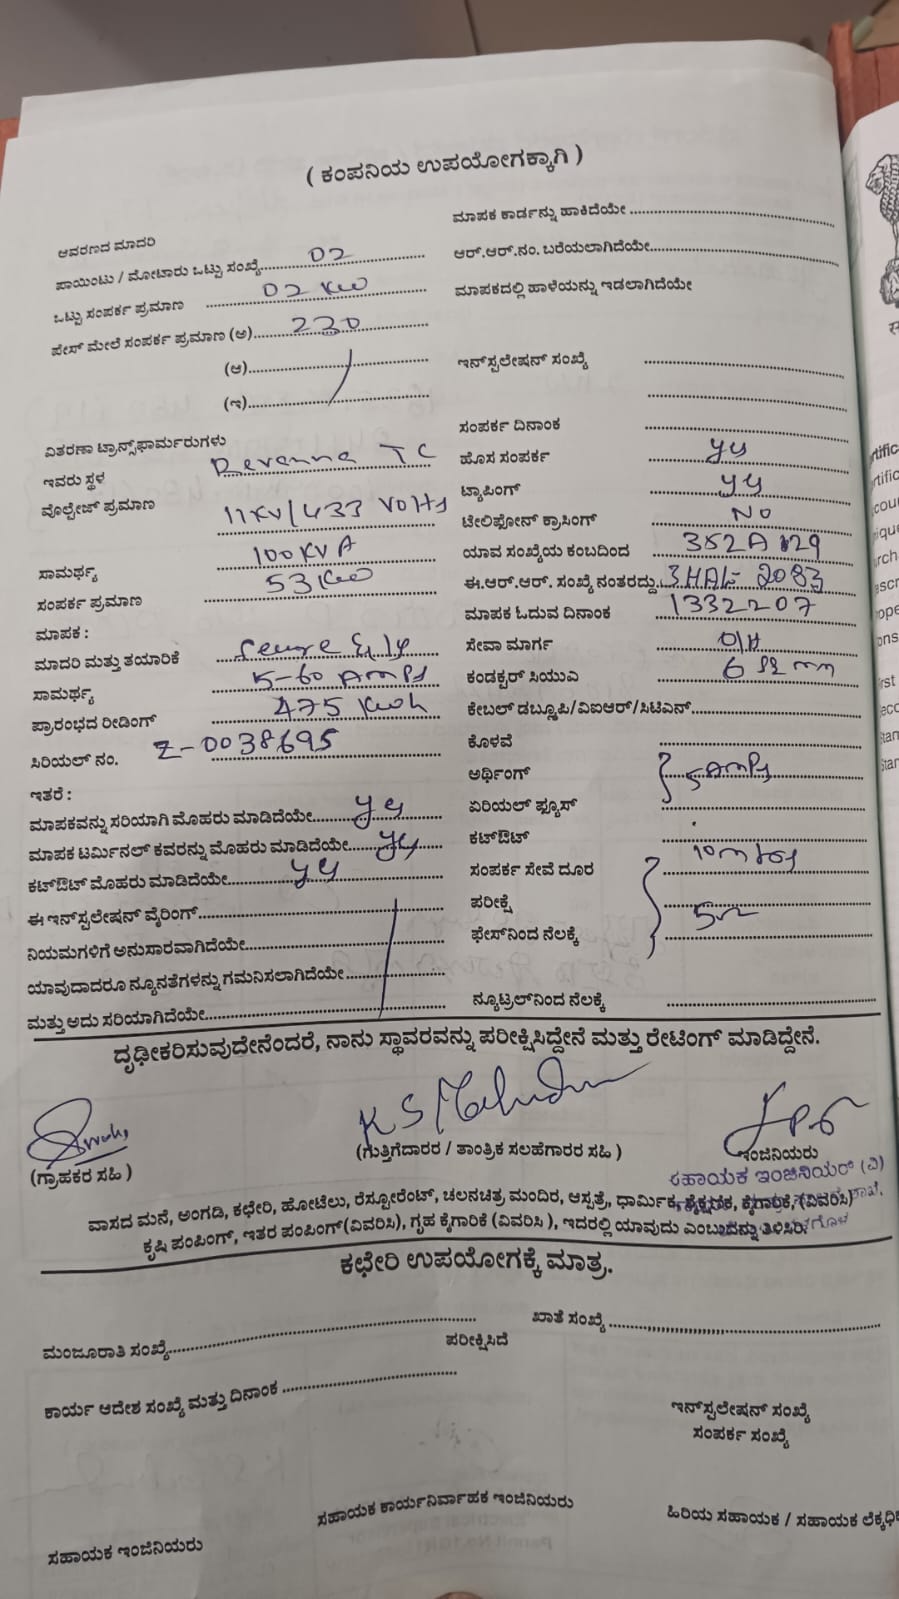 ( ಕಂಪನಿಯ ಉಪಯೋಗಕ್ಕಾಗಿ )
ಆವರಣದ ಮಾದರಿ
ಪಾಯಿಂಟು / ಮೋಟಾರು ಒಟ್ಟು ಸಂಖ್ಯೆ 02
ಒಟ್ಟು ಸಂಪರ್ಕ ಪ್ರಮಾಣ 02 KW
ಫೇಸ್ ಮೇಲೆ ಸಂಪರ್ಕ ಪ್ರಮಾಣ (ಅ) 230
(ಆ)
(ಇ)
ವಿತರಣಾ ಟ್ರಾನ್ಸ್‌ಫಾರ್ಮರುಗಳು
ಇವರು ಸ್ಥಳ Revanna TC
ವೊಲ್ಟೇಜ್ ಪ್ರಮಾಣ 11KV/433 VOltS
ಸಾಮರ್ಥ್ಯ 100KVA
ಸಂಪರ್ಕ ಪ್ರಮಾಣ 53KW
ಮಾಪಕ :
ಮಾದರಿ ಮತ್ತು ತಯಾರಿಕೆ Secure
ಸಾಮರ್ಥ್ಯ 5-60 AMPS
ಪ್ರಾರಂಭದ ರೀಡಿಂಗ್ 475 Kwh
ಸಿರಿಯಲ್ ನಂ. Z-0038695
ಇತರೆ :
ಮಾಪಕವನ್ನು ಸರಿಯಾಗಿ ಮೊಹರು ಮಾಡಿದೆಯೇ yes
ಮಾಪಕ ಟರ್ಮಿನಲ್ ಕವರನ್ನು ಮೊಹರು ಮಾಡಿದೆಯೇ yes
ಕಟ್‌ಔಟ್ ಮೊಹರು ಮಾಡಿದೆಯೇ yes
ಈ ಇನ್‌ಸ್ಟಲೇಷನ್ ವೈರಿಂಗ್
ನಿಯಮಗಳಿಗೆ ಅನುಸಾರವಾಗಿದೆಯೇ
ಯಾವುದಾದರೂ ನ್ಯೂನತೆಗಳನ್ನು ಗಮನಿಸಲಾಗಿದೆಯೇ
ಮತ್ತು ಅದು ಸರಿಯಾಗಿದೆಯೇ
ಮಾಪಕ ಕಾರ್ಡನ್ನು ಹಾಕಿದೆಯೇ
ಆರ್.ಆರ್.ನಂ. ಬರೆಯಲಾಗಿದೆಯೇ
ಮಾಪಕದಲ್ಲಿ ಹಾಳೆಯನ್ನು ಇಡಲಾಗಿದೆಯೇ
ಇನ್‌ಸ್ಟಲೇಷನ್ ಸಂಖ್ಯೆ
ಸಂಪರ್ಕ ದಿನಾಂಕ
ಹೊಸ ಸಂಪರ್ಕ yes
ಟ್ಯಾಪಿಂಗ್ yes
ಟೇಲಿಫೋನ್ ಕ್ರಾಸಿಂಗ್ NO
ಯಾವ ಸಂಖ್ಯೆಯ ಕಂಬದಿಂದ
ಈ.ಆರ್.ಆರ್. ಸಂಖ್ಯೆ ನಂತರದ್ದು 3HAL 2083
ಮಾಪಕ ಓದುವ ದಿನಾಂಕ 1332207
ಸೇವಾ ಮಾರ್ಗ O/H
ಕಂಡಕ್ಟರ್ ಸಿಯುಎ 6 sq mm
ಕೇಬಲ್ ಡಬ್ಲ್ಯೂಪಿ/ವಿಐಆರ್/ಸಿಟಿಎನ್
ಕೊಳವೆ
ಅರ್ಥಿಂಗ್ 5 AMPS
ಏರಿಯಲ್ ಫ್ಯೂಸ್
ಕಟ್‌ಔಟ್
ಸಂಪರ್ಕ ಸೇವೆ ದೂರ 10mtrs
ಪರೀಕ್ಷೆ
ಫೇಸ್‌ನಿಂದ ನೆಲಕ್ಕೆ 5Ω
ನ್ಯೂಟ್ರಲ್‌ನಿಂದ ನೆಲಕ್ಕೆ
ದೃಢೀಕರಿಸುವುದೇನೆಂದರೆ, ನಾನು ಸ್ಥಾವರವನ್ನು ಪರೀಕ್ಷಿಸಿದ್ದೇನೆ ಮತ್ತು ರೇಟಿಂಗ್ ಮಾಡಿದ್ದೇನೆ.
(ಗ್ರಾಹಕರ ಸಹಿ )
(ಗುತ್ತಿಗೆದಾರರ / ತಾಂತ್ರಿಕ ಸಲಹೆಗಾರರ ಸಹಿ )
ಇಂಜಿನಿಯರು
ಸಹಾಯಕ ಇಂಜಿನಿಯರ್ (ವಿ)
ವಾಸದ ಮನೆ, ಅಂಗಡಿ, ಕಛೇರಿ, ಹೋಟೆಲು, ರೆಸ್ಟೋರೆಂಟ್, ಚಲನಚಿತ್ರ, ಮಂದಿರ, ಆಸ್ಪತ್ರೆ, ಧಾರ್ಮಿಕ, ಶೈಕ್ಷಣಿಕ, ಕೈಗಾರಿಕೆ, (ವಿವರಿಸಿ)
ಕೃಷಿ ಪಂಪಿಂಗ್, ಇತರ ಪಂಪಿಂಗ್(ವಿವರಿಸಿ), ಗೃಹ ಕೈಗಾರಿಕೆ (ವಿವರಿಸಿ ), ಇದರಲ್ಲಿ ಯಾವುದು ಎಂಬುದನ್ನು ತಿಳಿಸಿರಿ.
ಕಛೇರಿ ಉಪಯೋಗಕ್ಕೆ ಮಾತ್ರ.
ಮಂಜೂರಾತಿ ಸಂಖ್ಯೆ
ಖಾತೆ ಸಂಖ್ಯೆ
ಪರೀಕ್ಷಿಸಿದೆ
ಕಾರ್ಯ ಆದೇಶ ಸಂಖ್ಯೆ ಮತ್ತು ದಿನಾಂಕ
ಇನ್‌ಸ್ಟಲೇಷನ್ ಸಂಖ್ಯೆ
ಸಂಪರ್ಕ ಸಂಖ್ಯೆ
ಸಹಾಯಕ ಇಂಜಿನಿಯರು
ಸಹಾಯಕ ಕಾರ್ಯನಿರ್ವಾಹಕ ಇಂಜಿನಿಯರು
ಹಿರಿಯ ಸಹಾಯಕ / ಸಹಾಯಕ